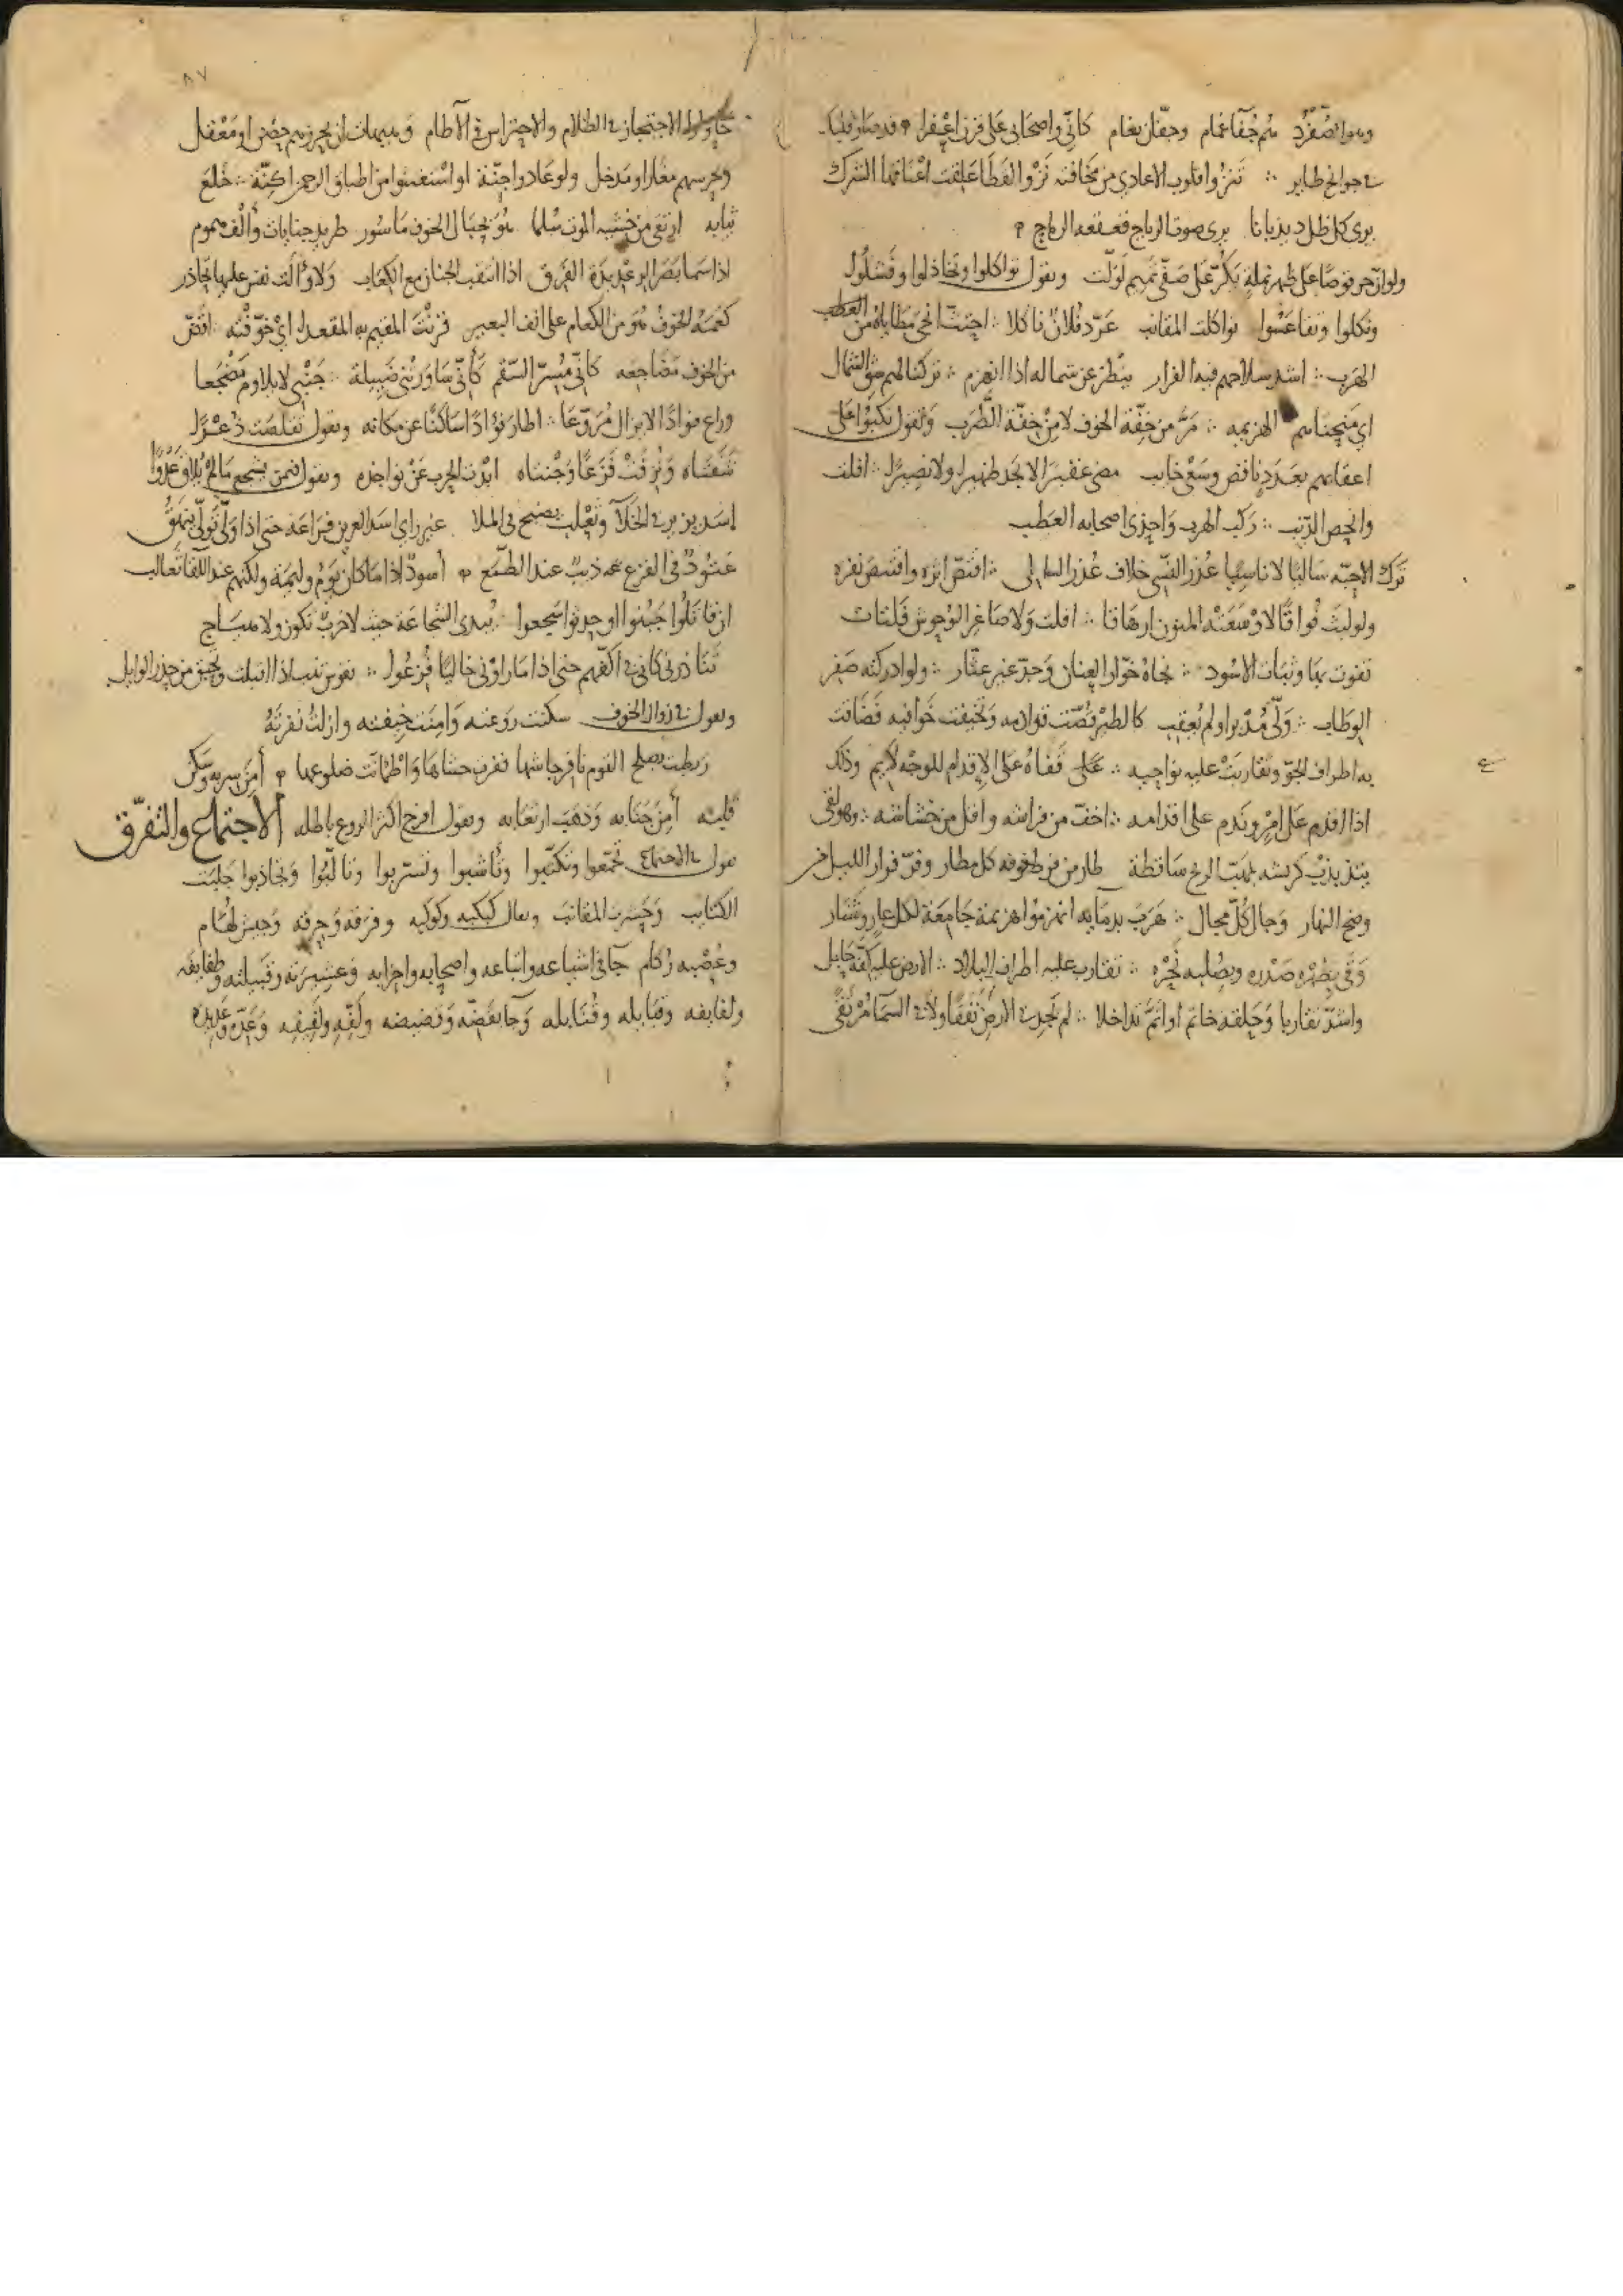 وهو اصفرد هم جُفآ غمام وجفّال نعام كانّي واصحابي على قرن اعفرا قد صار قلبك
في جوانح طاير تنزُوا قلوب الاعادي من مخافته نَزْوَ القطا علقت اعناقها الشرك
يرى كل ظل ديذبانا يرى صوت الرياح قعقعه الرماح
ولو انّ حرقوصا على ظهر نملةٍ يكرّ على صفّي تميم لولّت ونقول تواكلوا وتخاذلوا وفشلوا
ونكلوا وتقاعسوا تواكلت المقانب عرّد فلانٌ ناكلا اجتثّ انجى مطاياه من العطب
الهرب اشد سلاحهم فيه الفرار ينظر عن شماله اذا انهزم تركنا لهم شق الشمال
اي منحناهم الهزيمه مرّ من خفّة الخوف لا من خفّة الطرب ونقول نكبوا على
اعقابهم بعددٍ ناقص وسعى خايب مضى عفيرا لا يجد ظهيرا ولا نصيرا افلت
وانحصّ الذّنب ركب الهرب واحذى اصحابه العطب
ترك الاحبّه سالبا لا ناسيا عُذر النسي خلاف عُذر السالي اقتصّ اثره واقتنص نفره
ولو لبث فواقا لاوسعته المنون ارهاقا افلت ولا صاغر الوحوش فلتات
تفوت بها وثبات الاسود نجاهُ خوّار العنان وجدّ غير عثّار ولو ادركته صفر
الوطاب ولّى مُدبرا ولم يُعقب كالطير قُصّت قوادمه وتحيفت خوافيه فضاقت
به اطراف الجوّ وتقاربت عليه نواحيه على قفاهُ على الاقدام للوجه لايم وذلك
اذا اقدم على امرٍ وندم على اقدامه اخفّ من فراشه واقل من خشاشه وهو لقى
يتذبذب كريشه بمهبّ الريح ساقطة طار من فرط خوفه كل مطار وفرّ فرار الليل من
وضح النهار وجال كلّ مجال هرب بدمايه انهزموا هزيمة جامعة لكل عارٍ وشنار
وقى بظهره صدره وبصُلبه نحره تقارب عليه اطراف البلاد الارض عليه كفّة حابل
واشدّ تقاربا وحلقه خاتم او اتمّ تداخلا لم يجد في الارض نفقا ولا في السما مُرتقى
٨٧
حاولوا الاحتجاز في الظلام والاحتراس في الآطام وهيهات ان يحرزهم حصن او معقل
ويحرسهم مغار او مدخل ولو عادوا اجنّة او استغشوا من اطباق الرحم اكنّة خلع
ثيابه ارتقى من خشيه الموت سلما هو بحبال الخوف ماسور طريد جنايات والف هموم
اذا سما بصر الرعديدة الفرق اذا التقب الجنان مع الكعاب ولا والت نفس عليها تحاذر
كعمه الخوف هو من الكعام على انف البعير قرنت المقيم به المقعد اي خوّفته اقضّ
من الخوف مضاجعه كانّي مُسرّ السّقم كأنّي ساورتني ضييلة جنبي لا يلاوم مضجعا
وراع فوادا لا يزال مُروّعا اطار فوادا ساكنا عن مكانه ونقول تقلصت ذعرا
شفتاه ونزفت فزعا وجنتاه ابدت الحرب عن نواجذه ونقول فيمن يشجع ما لم يلاق عدوا
اسد يزير في الخلآ وثعلب يضبح في الملا عير راي اسد العرين فراعه حتى اذا ولّى تولّى ينهقُ
عتود في الفزع ذيب عند الطمع أسودٌ اذا ما كان يوم وليمة ولكنهم عند اللقا ثعالب
ان قاتلوا جبنوا او حدثوا شجعوا يبدي الشجاعة حيث لا حربٌ تكون ولا هياج
تناذرني كاني في اكفّهم حتى اذا ما راوني خاليا فزعوا
ونقول في زوال الخوف سكنت روعته وامنت خيفته وازلت نفرته
ربطت بصلح القوم نافر جاشها فقرت حشاها واطمانّت ضلوعها أمن سربه وسكن
قلبه أمن جنابه وذهب ارتعابه ونقول افرخ اكثر الروع باطله الاجتماع والتفرّق
نقول في الاجتماع تجمّعوا وتكتبوا وتأشبوا وتسربوا وتالّبوا وتجاذبوا جلبت
الكتايب وحشرت المقانب ويقال كبكبه وكوكبه وفرقه وحزقه وجيش لُهام
وعُصبه رُكام جآ في اشياعه واتباعه واصحابه واحزابه وعشيرته وقبيلته وطوايفه
ولفايفه وقبايله وقنابله وجآ بقضّه وقضيضه ولفّه ولفيفه وعدّه وعديده